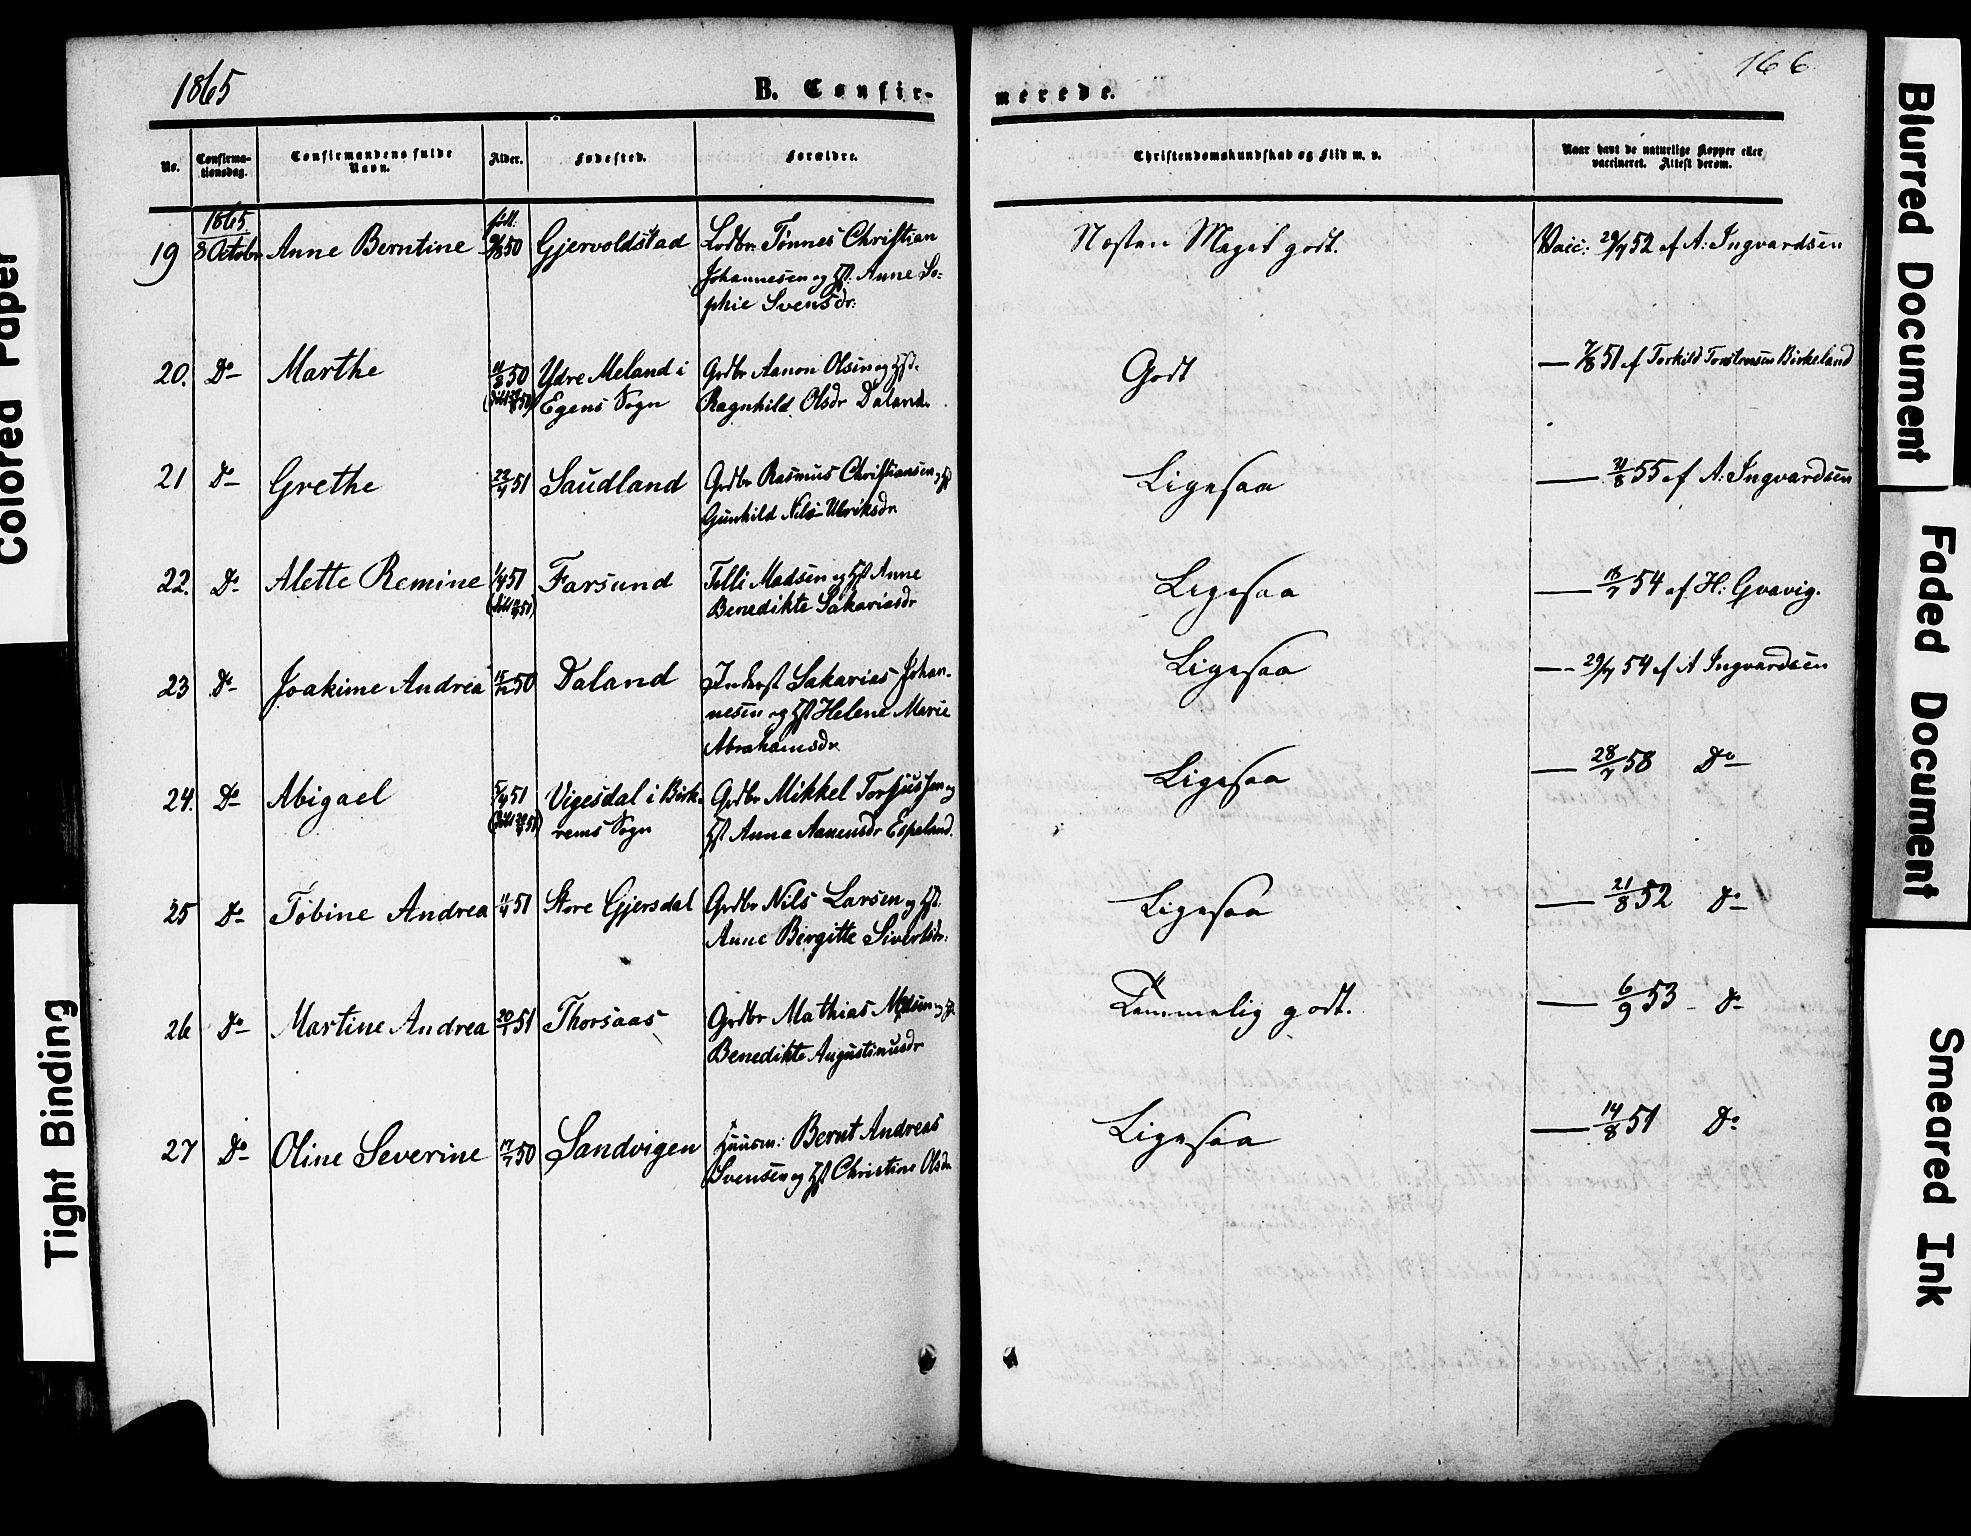 1865
B. Confir-
merede.
166
No.
Confirma-
tionsdag.
Confirmandens fulde
Navn.
Alder.
Fødested.
Forældre.
Christendomskundskab og Flid m. v.
Naar havt de naturlige Kopper eller
vaccineret. Attest derom.
1865
19 8 Octobr Anne Berntine 50 Gjervoldstad Lodbr. Tønnes Christian
Johannesen og Hst: Anne So-
phie Svensdr:
Næsten Meget godt.
Vacc: 29/7 52 af A: Ingvardsen
20. Do Marthe 50 Ydre Meland i Grdbr Aanon Olsen og Hst.
Egens Sogn Ragnhild Olsdr Daland.
Godt
— 7/8 51 af Torkild Torstensen Birkeland
21 Do Grethe 22/4 51 Saudland Grdbr Rasmus Christiansen og Hst
Gunhild Nils Ulriksdr
Ligesaa
— 55 af A: Ingvardsen
22. Do Alette Remine 51 Farsund Tolli Madsen og Hst Anne
Benedikte Sakariasdr
Ligesaa
— 54 af H: Gvavig.
23 Do Joakime Andrea 50 Daland Inderst Sakarias Johan-
nesen og Hst Helene Marie
Abrahamsdr
Ligesaa
— 29/7 54 af A Ingvardsen
24. Do Abigael 51 Vigesdal i Birk- Grdbr Mikkel Torjussen og
rems Sogn Hst Anna Aanensdr Espeland.
Ligesaa
— 28/7 58 Do
25 Do Tobine Andrea 51 Store Gjersdal Grdbr Nils Larsen og Hst
Anne Bergitte Sivertsdr:
Ligesaa
— 21/8 52 Do
26 Do Martine Andrea 51 Thorsaas Grdbr Mathias Madsen og Hst
Benedikte Augustinusdr
Temmelig godt.
— 6/9 53 - Do
27 Do Oline Severine 17/7 50 Sandvigen Huusm: Bernt Andreas
Svensen og Hst Christine Olsdr
Ligesaa
— 14/8 51 Do
Colored Paper
Tight Binding
Blurred Document
Faded Document
Smeared Ink